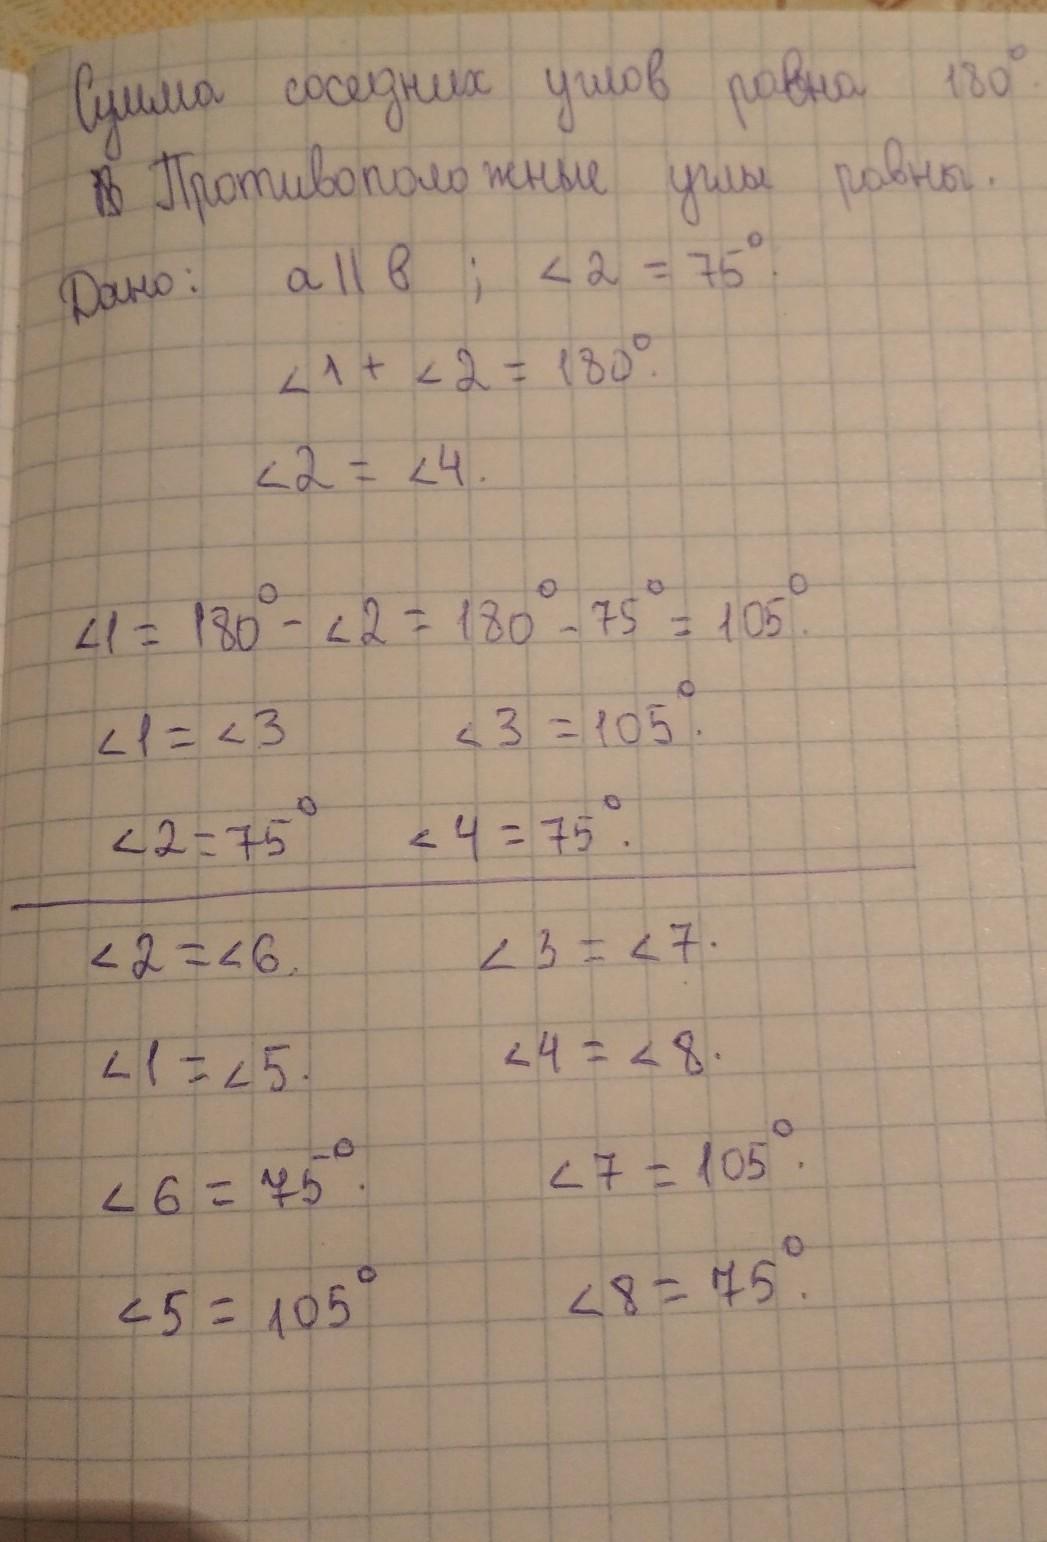 Сумма соседних углов равна 180°.
Противоположные углы равны.
Дано: a || b ; <2 = 75°.
<1 + <2 = 180°.
<2 = <4.
<1 = 180° - <2 = 180° - 75° = 105°.
<1 = <3 <3 = 105°.
<2 = 75° <4 = 75°.
<2 = <6. <3 = <7.
<1 = <5. <4 = <8.
<6 = 75°. <7 = 105°.
<5 = 105° <8 = 75°.